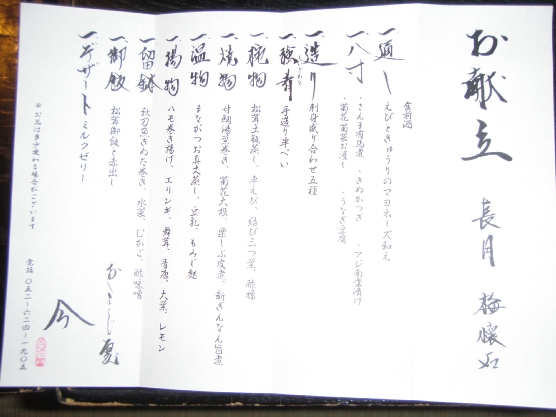 お献立
長月
一、通し
食前酒
えびときゅうりのマヨネーズ和え
一、八寸
・さんま有馬煮 ・きぬかつぎ ・アジ南蛮漬け
・菊花菊菜お浸し ・うなぎ豆腐
一、造り
刺身盛り合わせ五種
手造り半ぺい
一、椀物
松茸土瓶蒸し、車えび、結び三つ葉、酢橘
一、焼物
甘鯛湯葉巻き、菊花大根、栗しぶ皮煮、新ぎんなん旨煮
一、温物
まながつお真丈蒸し、豆乳、もみじ麩
一、揚物
ハモ巻き揚げ、エリンギ、舞茸、青唐、大葉、レモン
一、留鉢
秋刀魚きぬた巻き、水菜、むかご、酢味噌
一、御飯
松茸御飯・赤出し
一、デザート
ミルクゼリー
※お品は多少変わる場合がございます
電話 〇五二-六二四-一九〇五